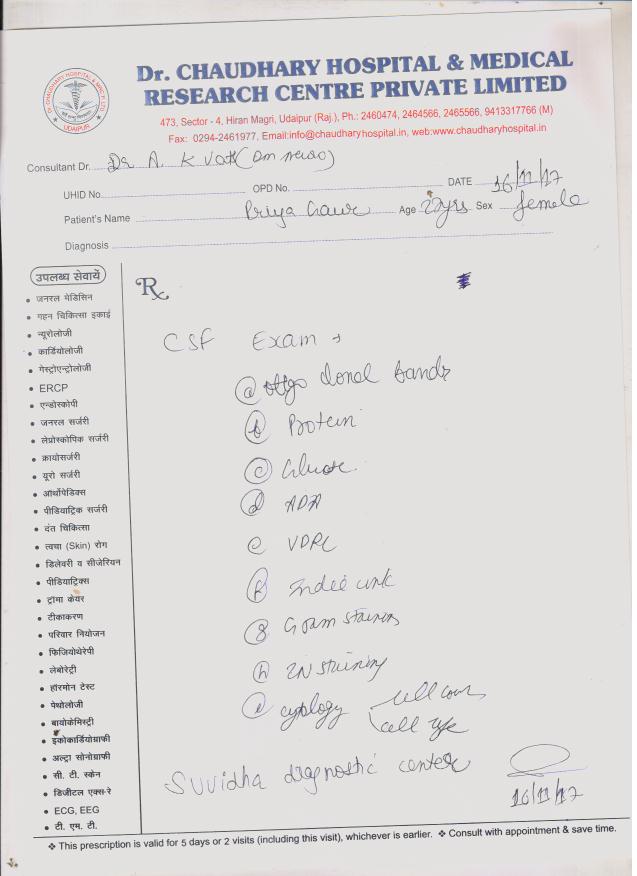 Dr. CHAUDHARY HOSPITAL & MEDICAL
RESEARCH CENTRE PRIVATE LIMITED
473, Sector - 4, Hiran Magri, Udaipur (Raj.), Ph.: 2460474, 2464566, 2465566, 9413317766 (M)
Fax: 0294-2461977, Email:info@chaudharyhospital.in, web:www.chaudharyhospital.in
UDAIPUR
Consultant Dr. Dr. A. K Vats (Dm neuro)
UHID No. OPD No. DATE 16/11/17
Patient's Name Priya Gaur Age 22yrs Sex female
Diagnosis
उपलब्ध सेवायें
• जनरल मेडिसिन
• गहन चिकित्सा इकाई
• न्यूरोलोजी
• कार्डियोलोजी
• गेस्ट्रोएन्ट्रोलोजी
• ERCP
• एन्डोस्कोपी
• जनरल सर्जरी
• लेप्रोस्कोपिक सर्जरी
• क्रायोसर्जरी
• यूरो सर्जरी
• ऑर्थोपेडिक्स
• पीडियाट्रिक सर्जरी
• दंत चिकित्सा
• त्वचा (Skin) रोग
• डिलेवरी व सीजेरियन
• पीडियाट्रिक्स
• ट्रॉमा केयर
• टीकाकरण
• परिवार नियोजन
• फिजियोथेरेपी
• लेबोरेट्री
• हॉरमोन टेस्ट
• पेथोलोजी
• बायोकेमिस्ट्री
• इकोकार्डियोग्राफी
• अल्ट्रा सोनोग्राफी
• सी. टी. स्केन
• डिजीटल एक्स-रे
• ECG, EEG
• टी. एम. टी.
Rx
CSF Exam →
(a) oligo clonal bands
(b) Protein
(c) Glucose
(d) ADA
(e) VDRL
(f) India ink
(g) Gram staining
(h) ZN staining
(i) cytology cell count
cell type
Suvidha diagnostic center
16/11/17
❖ This prescription is valid for 5 days or 2 visits (including this visit), whichever is earlier. ❖ Consult with appointment & save time.